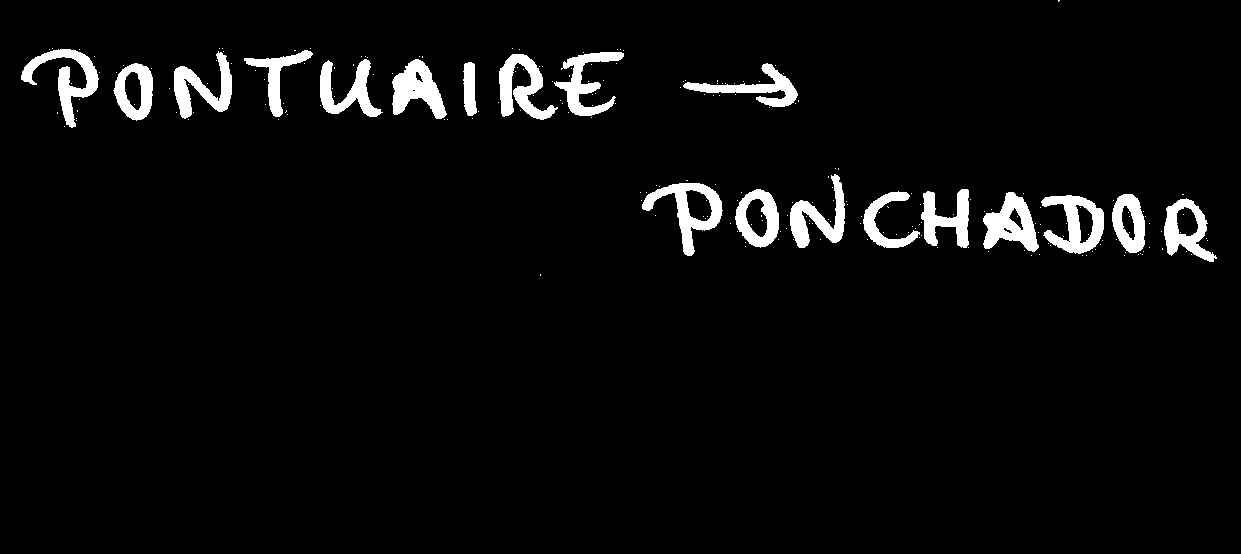 PONTUAIRE →
PONCHADOR